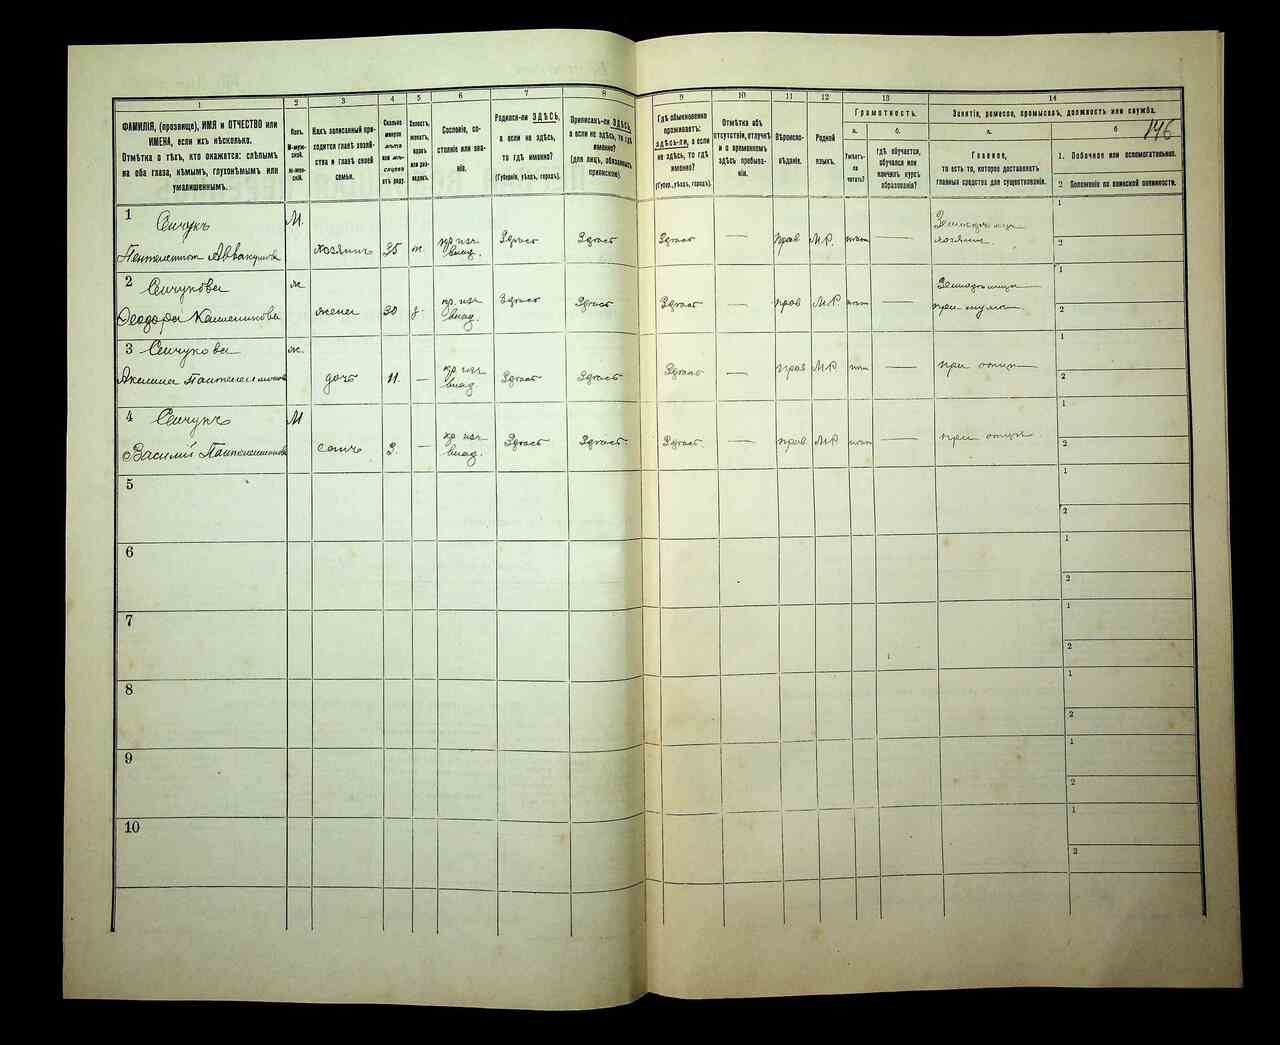 1
2
3
4
5
6
7
8
9
10
11
12
13
14
ФАМИЛІЯ, (прозвище), ИМЯ и ОТЧЕСТВО или
ИМЕНА, если ихъ нѣсколько.
Отмѣтка о тѣхъ, кто окажется: слѣпымъ
на оба глаза, нѣмымъ, глухонѣмымъ или
умалишеннымъ.
Полъ.
М-муж-
ской.
Ж-жен-
скій.
Какъ записанный при-
ходится главѣ хозяй-
ства и главѣ своей
семьи.
Сколько
минуло
лѣтъ
или мѣ-
сяцевъ
отъ роду.
Холостъ,
женатъ,
вдовъ
или раз-
веденъ.
Сословіе, со-
стояніе или зва-
ніе.
Родился-ли ЗДѢСЬ,
а если не здѣсь,
то гдѣ именно?
(Губернія, уѣздъ, городъ).
Приписанъ-ли ЗДѢСЬ,
а если не здѣсь, то гдѣ
именно?
(для лицъ, обязанныхъ
припискою).
Гдѣ обыкновенно
проживаетъ:
здѣсь-ли, а если
не здѣсь, то гдѣ
именно?
(Губер., уѣздъ, городъ).
Отмѣтка объ
отсутствіи, отлучкѣ
и о временномъ
здѣсь пребыва-
ніи.
Вѣроиспо-
вѣданіе.
Родной
языкъ.
Грамотность.
а.
б.
Умѣетъ-
ли
читать?
гдѣ обучается,
обучался или
кончилъ курсъ
образованія?
Занятіе, ремесло, промыселъ, должность или служба.
а.
б
146
Главное,
то есть то, которое доставляетъ
главныя средства для существованія.
1. Побочное или вспомогательное.
2 Положеніе по воинской повинности.
1
Сенчукъ
М.
Аввакумовъ
хозяинъ
35
ж.
кр. изъ
влад.
Здѣсь
Здѣсь
Здѣсь
—
прав
М.Р.
—
хозяинъ.
1
2
2 Сенчукова
ж
Ѳеодора
жена
30
з.
кр. изъ
влад.
Здѣсь
Здѣсь
Здѣсь
—
прав
МР
—
при мужѣ.
1
2
3 Сенчукова
ж.
Акилина
дочь
11.
—
кр изъ
влад.
Здѣсь
Здѣсь
Здѣсь
—
прав
МР
—
при отцѣ
1
2
4 Сенчукъ
М
Василій
сынъ
3.
—
кр изъ
влад.
Здѣсь
Здѣсь.
Здѣсь.
—
прав.
МР
—
при отцѣ.
1
2
5
1
2
6
1
2
7
1
2
8
1
2
9
1
2
10
1
2